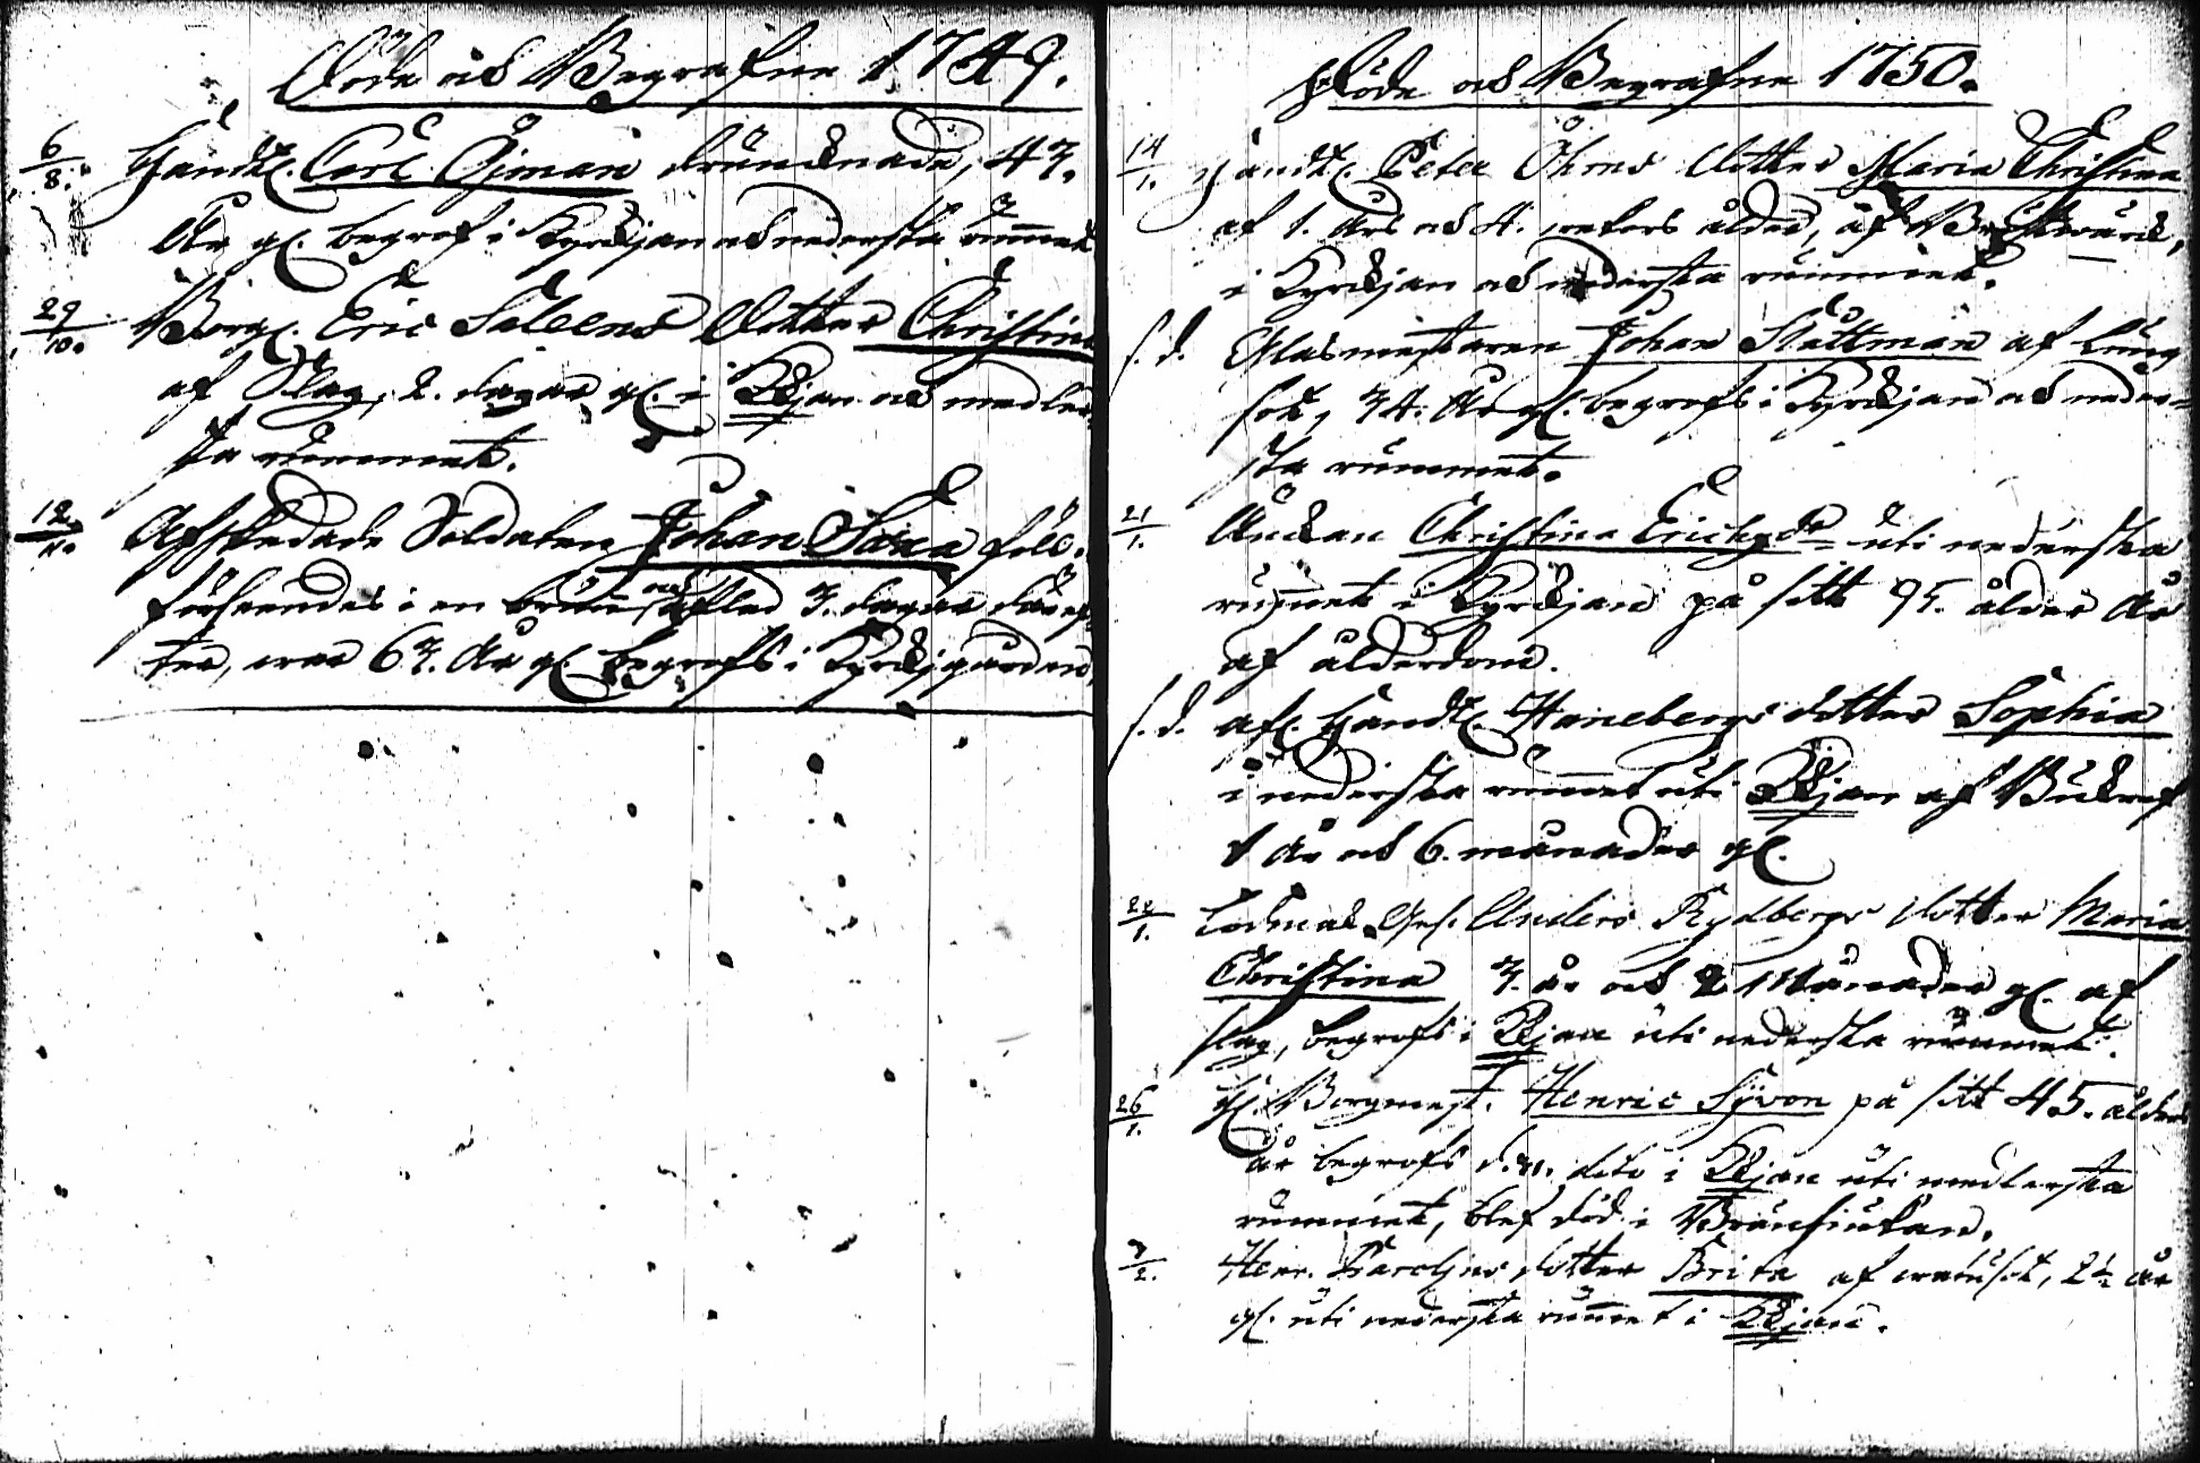 Döde och Begrafne 1749.
6/8. Handl. Carl Öjman drunknade, 43.
År gl. begrof i Kyrckjan och nedersta rummet
29/10. Borg. Eric Saleens Dotter Christina
af Slag, 2. dagar gl. i Kkjan och medler
sta rummet.
12/11. Afskedade Soldaten Johan föll
i en brun och afled 3. dagar däref
ter, war 63. År gl. begrofs i Kyrckjgården
Döde och Begrafne 1750.
14/1. Handl. Peter Öhrns dotter Maria Christina
af 1. Års och 4. wekors ålder, af Bröstwärck,
i Kyrckjan och nedersta rummet.
s. d. Glasmestaren Johan Slättman af Lung
sot, 34. År gl. begrofs i Kyrckjan och neder=
sta rummet.
21/1. Änckan Christina Ericsdr uti nedersta
rummet i Kyrckjan på sitt 95. ålders År
af ålderdom.
s. d. afl. Handl. Hanebergs dotter Sophia
i nedersta rummet uti Kkjan af Bukref
1 År och 6. månader gl.
22/1. Ges. Anders Rydbergs dotter Maria
Christina 3. år och 2 Månader gl. af
slag, begrofs i Kkjan uti nedersta rummet.
26/1. Hl. Borgmest. Henric Sývon på sitt 45. ålders
år begrofs d. 31. dito i Kkjan uti medlersta
rummet, blef död i Bränsiukan.
3/2. Henr. dotter Brita af wattusot, 2½ år
gl. uti nedersta rummet i Kkjan.